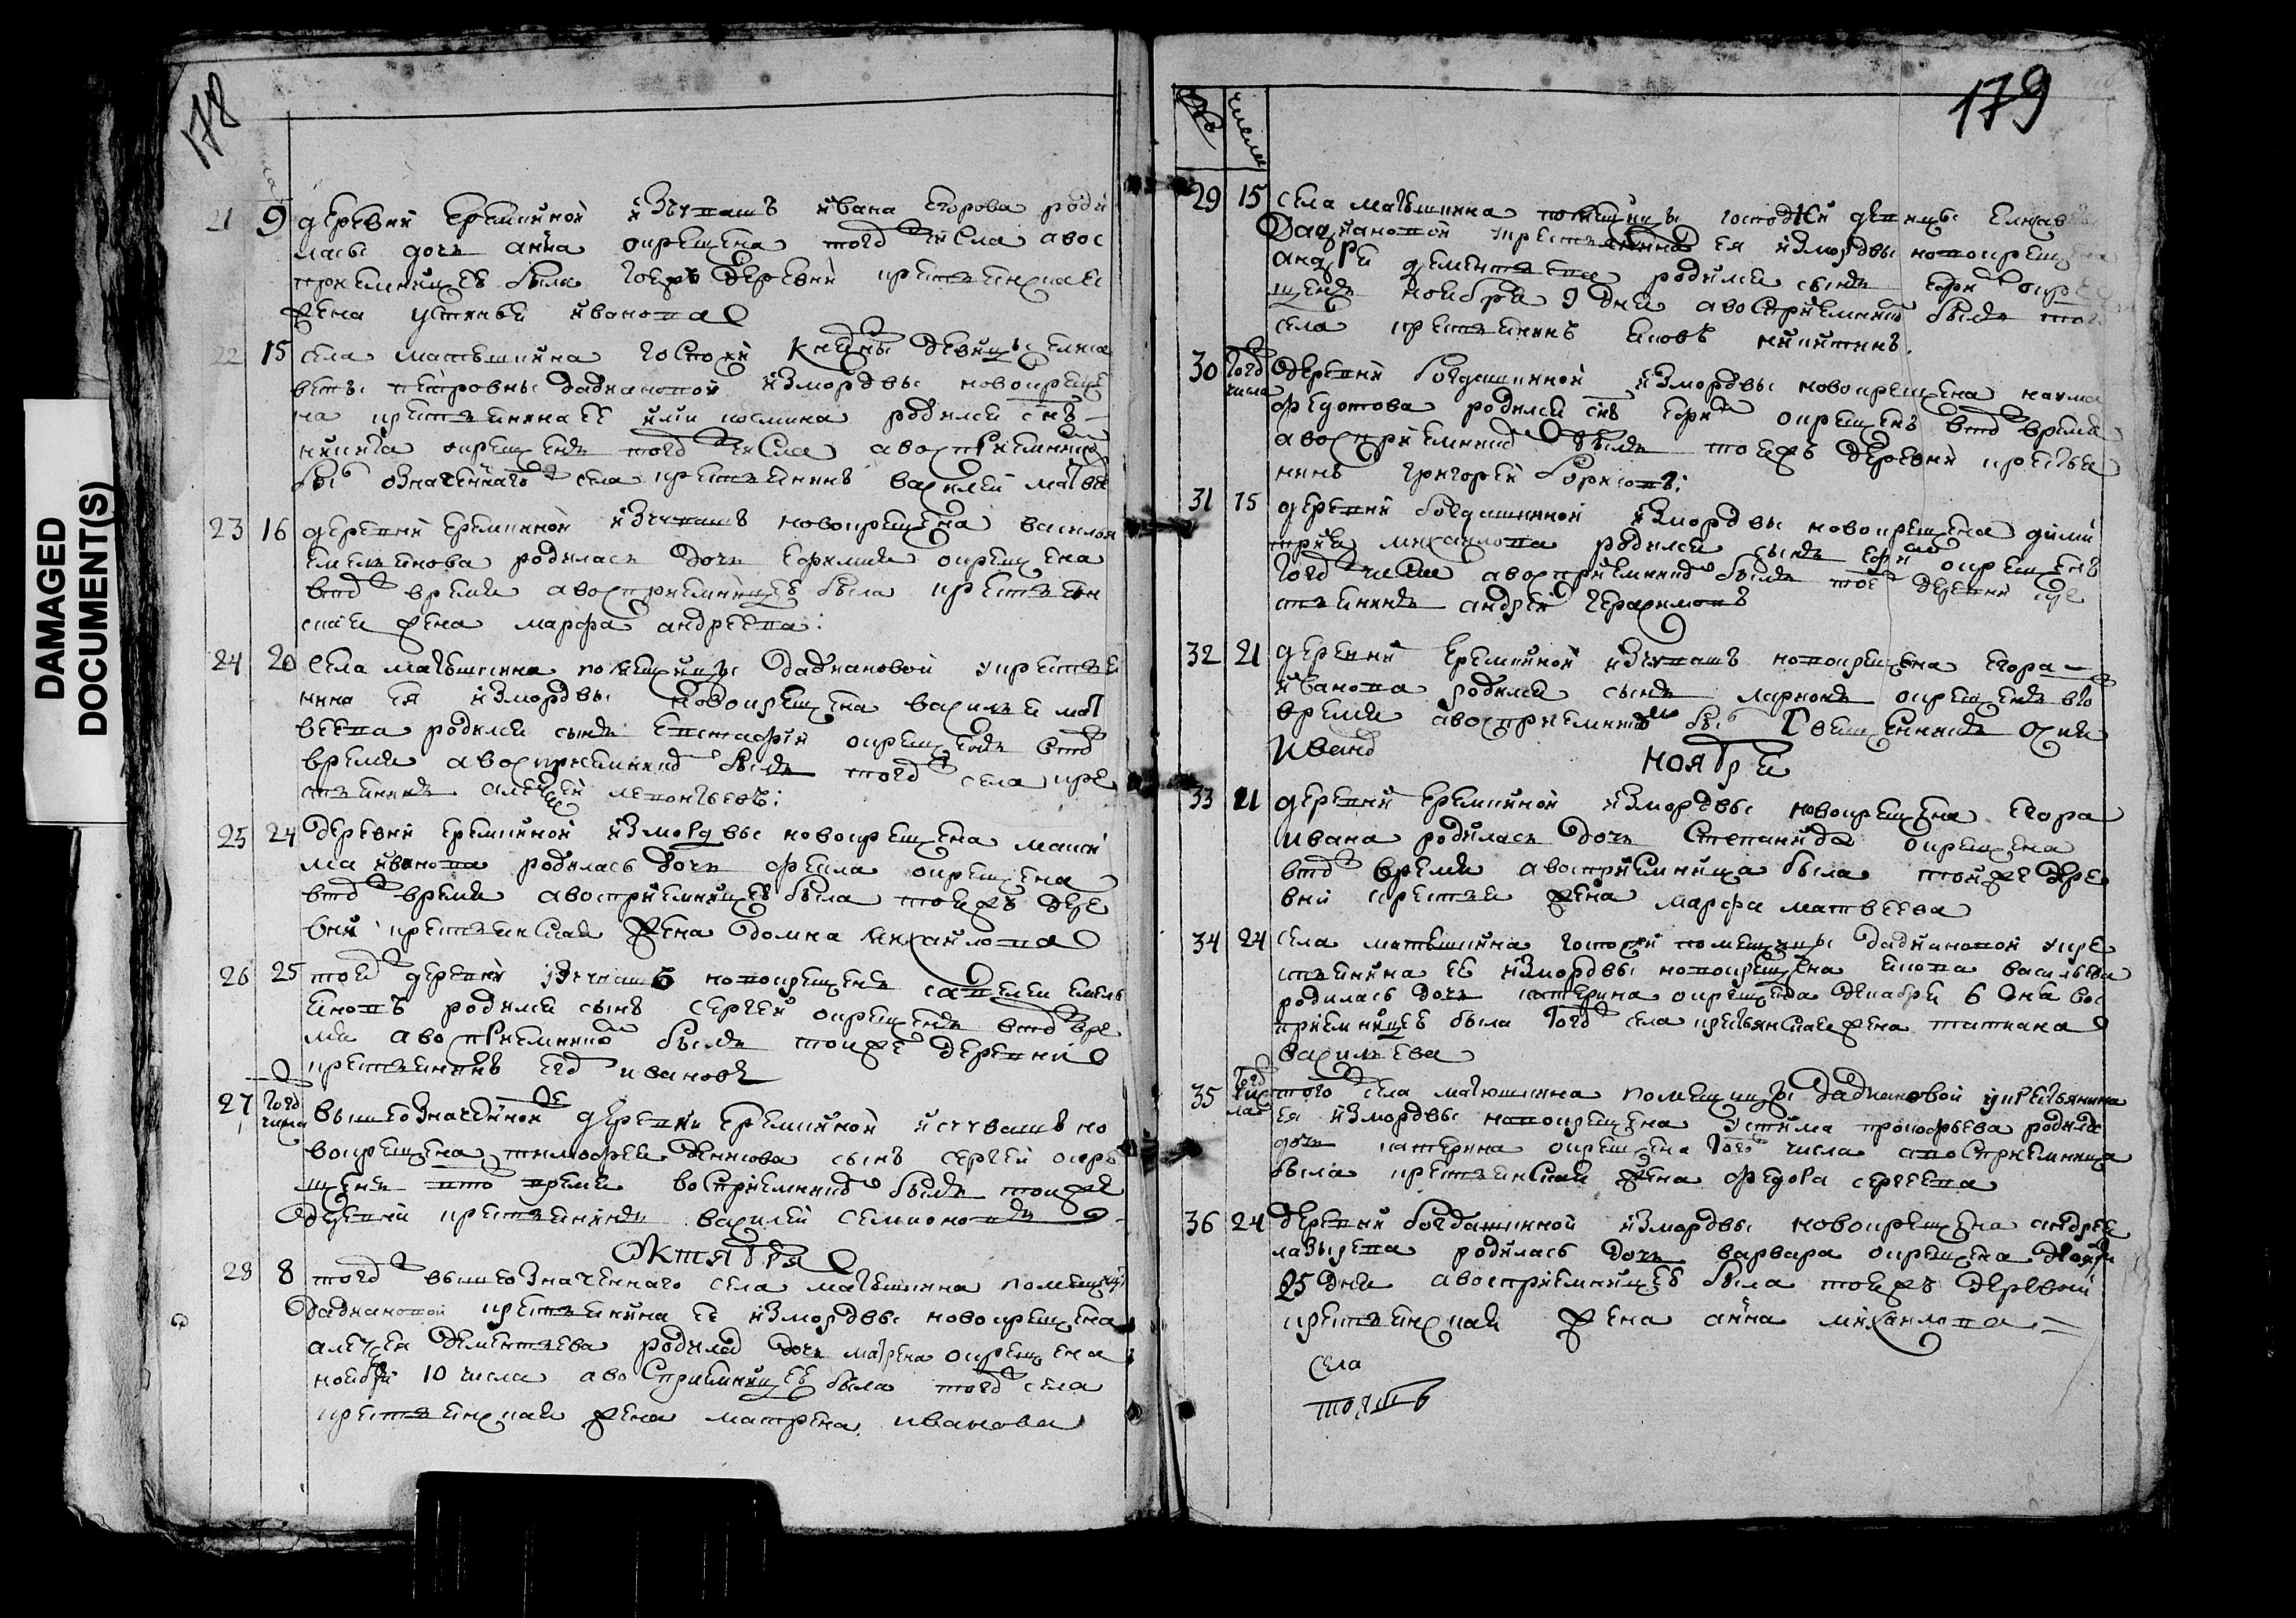 DAMAGED
DOCUMENT(S)
178
21 9 деревни Еремкиной изчувашъ ивана Егорова роди
лась дочь анна окрещена того числа авос
приемницеѣ была тоежъ деревни крестьянская
жена устинья иванова
22 15 села матюшкина госпожи княжны девицы елиса
веты петровны дадиановой измордвы новокреще
на крестьянина ея родился снъ
никита окрещенъ того числа авосприемнико
бы означеннаго села крестьянинъ василей матве
23 16 деревни еремкиной изчувашъ новокрещена василья
емельянова родилась дочь ефимия окрещена
вто время авосприемницеѣ была крестьян
ская жена марфа андреева:
24 20 села матюшкина помещицы дадиановой укрестья
нина ея измордвы новокрещена василья мат
веева родился сынъ евстафий окрещенъ вто
время авосприемнико былъ того села кре
стьянинъ алексей леонтьевъ:
25 24 деревни еремкиной измордвы новокрещена макси
ма иванова родилась дочь фекла окрещена
вто время авосприемницеѣ была тоежъ дере
вни крестьянская жена домна михайлова
26 25 той деревни изчувашъ новокрещена савелья емель
янова родился сынъ сергей окрещенъ вто вре
мя авосприемнико былъ тоиже деревни
крестьянинъ его ивановъ
27 того числа вышеозначенной деревни еремкиной исчувашъ но
вокрещена тимофея денисова сынъ сергей окре
щенъ вто время восприемнико былъ тоиже
деревни крестьянинъ василей семионовъ
Октября
28 8 того вышеозначеннаго села матюшкина помещицы
дадиановой крестьянина ее измордвы новокрещена
алексея дементьева родилась дочь матрена окрещена
ноября 10 числа авосприемницеѣ была того села
крестьянская жена матрена иванова
179
числа
29 15 села матюшкина помещицы госпожи девицы елисав
дадиановой крестьянина ея измордвы новокрещена
андрея дементьева родился сынъ окре
щенъ ноября 9 дня авосприемнико былъ того
села крестьянинъ иовъ никитинъ.
30 того числа деревни богдашкиной измордвы новокрещена наума
федотова родился снъ окрещенъ вто время
авосприемнико былъ тоежъ деревни крестья
нинъ григорей борисовъ:
31 15 деревни богдашкиной измордвы новокрещена дими
трия михайлова родился сынъ окрещенъ
того числа авосприемнико былъ тое деревни кре
стьянинъ андрей герасимовъ
32 21 деревни еремкиной изчувашъ новокрещена егора
иванова родился сынъ ларионъ окрещенъ вто
время авосприемнико бы священникъ
Иванъ
ноября
33 21 деревни еремкиной измордвы новокрещена егора
ивана родилась дочь степанида окрещена
вто время авосприемница была тойже дере
вни крестья жена марфа матвеева
34 24 села матюшкина госпожи помещицы дадиановой укре
стьянина ее измордвы новокрещена иова васильева
родилась дочь катерина окрещена декабря 6 дна вос
приемницеѣ была того села крестьянская жена татиана
васильева
35 того числа того села матюшкина помещицы дадиановой укрестьянина
ея измордвы новокрещена устима прокофьева родилас
дочь катерина окрещена того числа авосприемница
была крестьянская жена федора сергеева
36 24 деревни богдашкиной измордвы новокрещена андрея
лазырева родилась дочь варвара окрещена ноября
25 дня авосприемницеѣ была тоежъ деревни
крестьянская жена анна михайлова
села